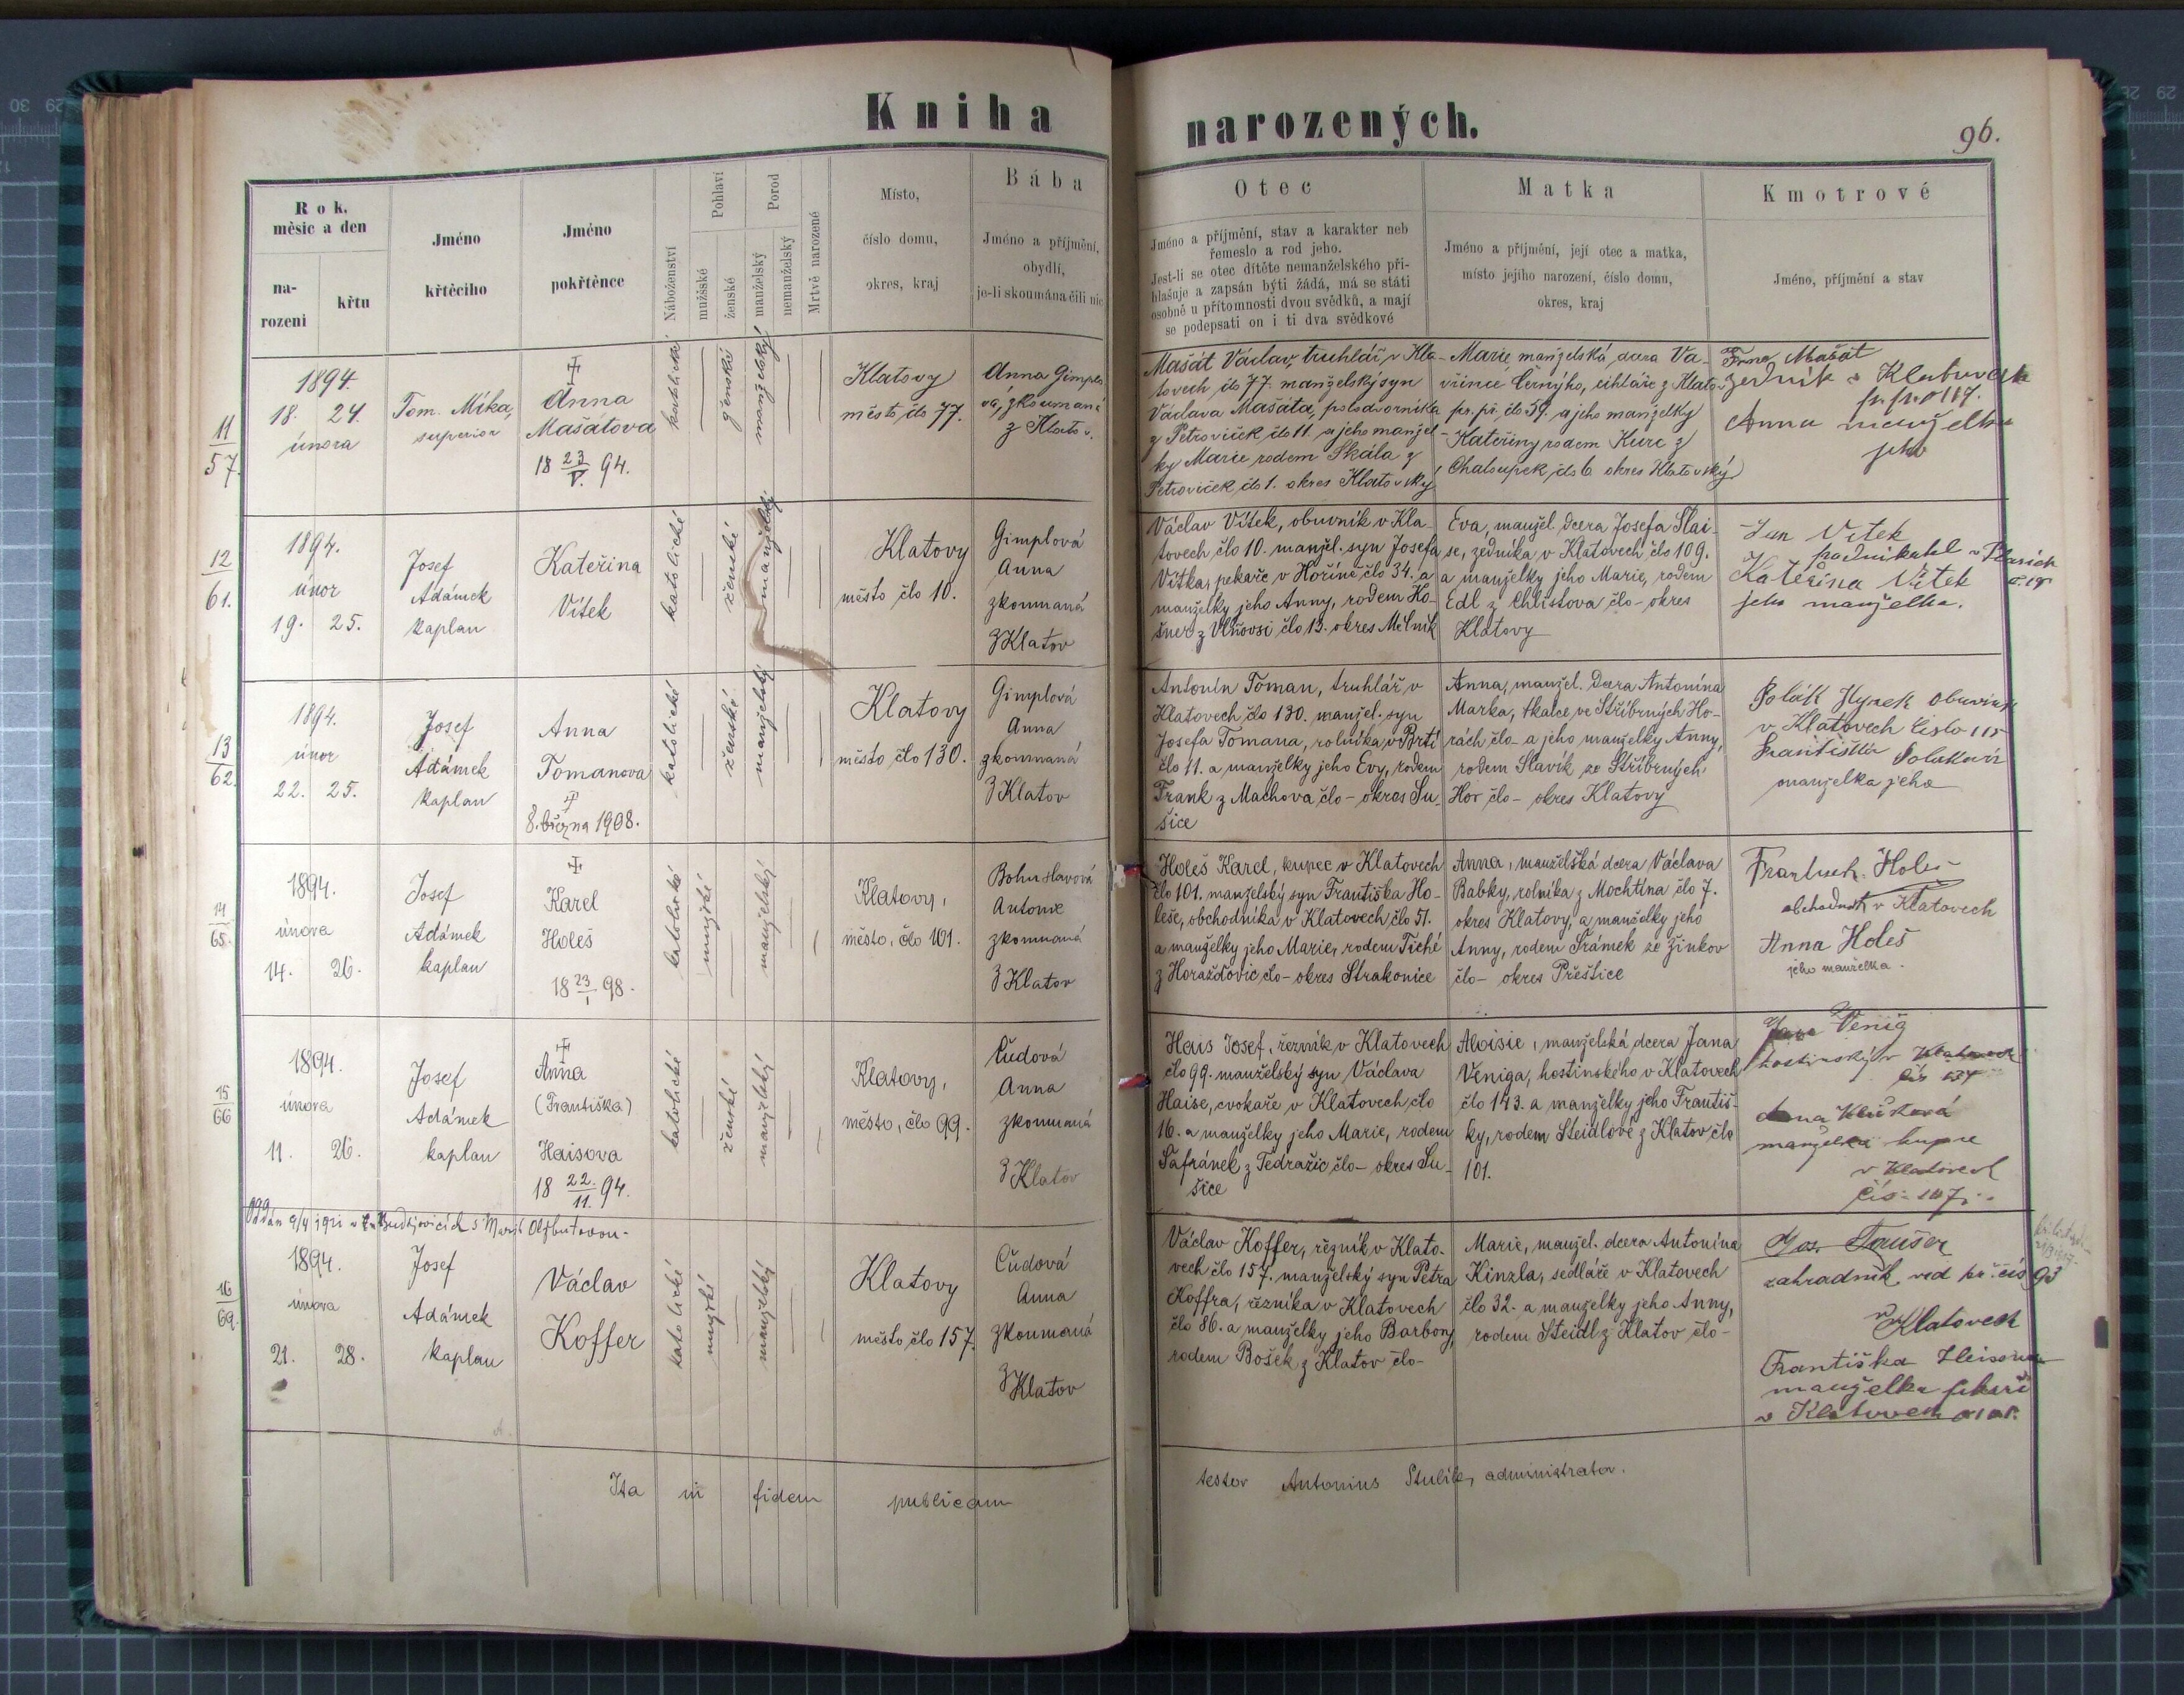 Kniha narozených.
96.
Rok, měsíc a den
narození
křtu
Jméno křtěcího
Jméno pokřtěnce
Náboženství
Pohlaví
mužské
ženské
Porod
manželský
nemanželský
Mrtvě narozené
Místo,
číslo domu,
okres, kraj
Bába
Jméno a příjmění,
obydlí,
je-li skoumána čili nic
Otec
Jméno a příjmění, stav a karakter neb
řemeslo a rod jeho.
Jest-li se otec dítěte nemanželského při-
hlašuje a zapsán býti žádá, má se státi
osobně u přítomnosti dvou svědků, a mají
se podepsati on i ti dva svědkové
Matka
Jméno a příjmění, její otec a matka,
místo jejího narození, číslo domu,
okres, kraj
Kmotrové
Jméno, příjmění a stav
11
57.
1894.
18. 24.
února
Tom. Míka,
superior
Anna
Mašátova
18 23/V. 94.
katolické
ženské
manželský
Klatovy
město čís 77.
Anna Gimplo-
vá, zkoumaná
z Klatov.
Mašát Václav, truhlář v Kla-
tovech čís 77. manželský syn
Václava Mašáta, polodvorníka
z Petroviček čís 11. a jeho manžel-
ky Marie rodem Skála z
Petroviček čís 1. okres Klatovský
Marie, manželská dcera Va-
vřince Černýho, cihláře z Klatov
pr. př. čís 59. a jeho manželky
Kateřiny rodem Kurc z
Chaloupek, čís 6 okres Klatovský
Mašát
zedník v Klatovech
Anna manželka
jeho
12
61.
1894.
únor
19. 25.
Josef
Adámek
kaplan
Kateřina
Vítek
katolické
ženské
manželský
Klatovy
město čło 10.
Gimplová
Anna
zkoumaná
z Klatov
Václav Vítek, obuvník v Kla-
tovech čło 10. manžel. syn Josefa
Vítka, pekaře v Hoříně čło 34. a
manželky jeho Anny, rodem Ko-
šner z Vlňovsi čło 13. okres Mělník
Eva, manžel. dcera Josefa Slai-
se, zedníka v Klatovech čło 109.
a manželky jeho Marie, rodem
Edl z Chlistova čło - okres
Klatovy
Jan Vítek
podnikatel v
Kateřina Vítek
jeho manželka.
13
62.
1894.
únor
22. 25.
Josef
Adámek
kaplan
Anna
Tomanova
8. března 1908.
katolické
ženské
manželský
Klatovy
město čło 130.
Gimplová
Anna
zkoumaná
z Klatov
Antonín Toman, truhlář v
Klatovech čło 130. manžel. syn
Josefa Tomana, rolníka v Brti
čło 11. a manželky jeho Evy, rodem
Frank z Machova čło - okres Su-
šice
Anna, manžel. dcera Antonína
Marka, tkalce ve Stříbrných Ho-
rách čło - a jeho manželky Anny,
rodem Slavík ze Stříbrných
Hor čło - okres Klatovy
Polák Hynek obuvník
v Klatovech číslo 115
Františka Poláková
manželka jeho
14
65.
1894.
února
14. 26.
Josef
Adámek
kaplan
Karel
Holeš
18 23/I 98.
katolické
mužské
manželský
Klatovy,
město, čło 101.
Bohuslavová
Antonie
zkoumaná
z Klatov
Holeš Karel, kupec v Klatovech
čło 101. manželský syn Františka Ho-
leše, obchodníka v Klatovech čło 51.
a manželky jeho Marie, rodem Tiché
z Horažďovic čło - okres Strakonice
Anna, manželská dcera Václava
Babky, rolníka z Mochtína čło 7.
okres Klatovy, a manželky jeho
Anny, rodem Šrámek ze Žinkov
čło - okres Přeštice
Frantisek Holeš
obchodník v Klatovech
Anna Holeš
jeho manželka.
15
66
1894.
února
11. 26.
Josef
Adámek
kaplan
Anna
(Františka)
Haisova
18 22./11. 94.
katolické
ženské
manželský
Klatovy,
město, čło 99.
Čudová
Anna
zkoumaná
z Klatov
Hais Josef, řezník v Klatovech
čło 99. manželský syn Václava
Haise, cvokaře v Klatovech čło
16. a manželky jeho Marie, rodem
Šafránek z Tedražic čło - okres Su-
šice
Aloisie, manželská dcera Jana
Veniga, hostinského v Klatovech
čło 143. a manželky jeho Františ-
ky, rodem Steidlové z Klatov čło
101.
Venig
hostinský v Klatovech
manželka kupce
v Klatovech
čís. 107
16
69.
1894.
února
21. 28.
Josef
Adámek
kaplan
Václav
Koffer
katolické
mužské
manželský
Klatovy
město čło 157.
Čudová
Anna
zkoumaná
z Klatov
Václav Koffer, řezník v Klato-
vech čło 157. manželský syn Petra
Koffra, řezníka v Klatovech
čło 86. a manželky jeho Barbory,
rodem Bošek z Klatov čło -
Marie, manžel. dcera Antonína
Kinzla, sedláře v Klatovech
čło 32. a manželky jeho Anny,
rodem Steidl z Klatov čło -
Jos. Taušer
zahradník
v Klatovech
Františka
manželka
v Klatovech
Ita in fidem publicam
testor Antonius Stulík, administrator.